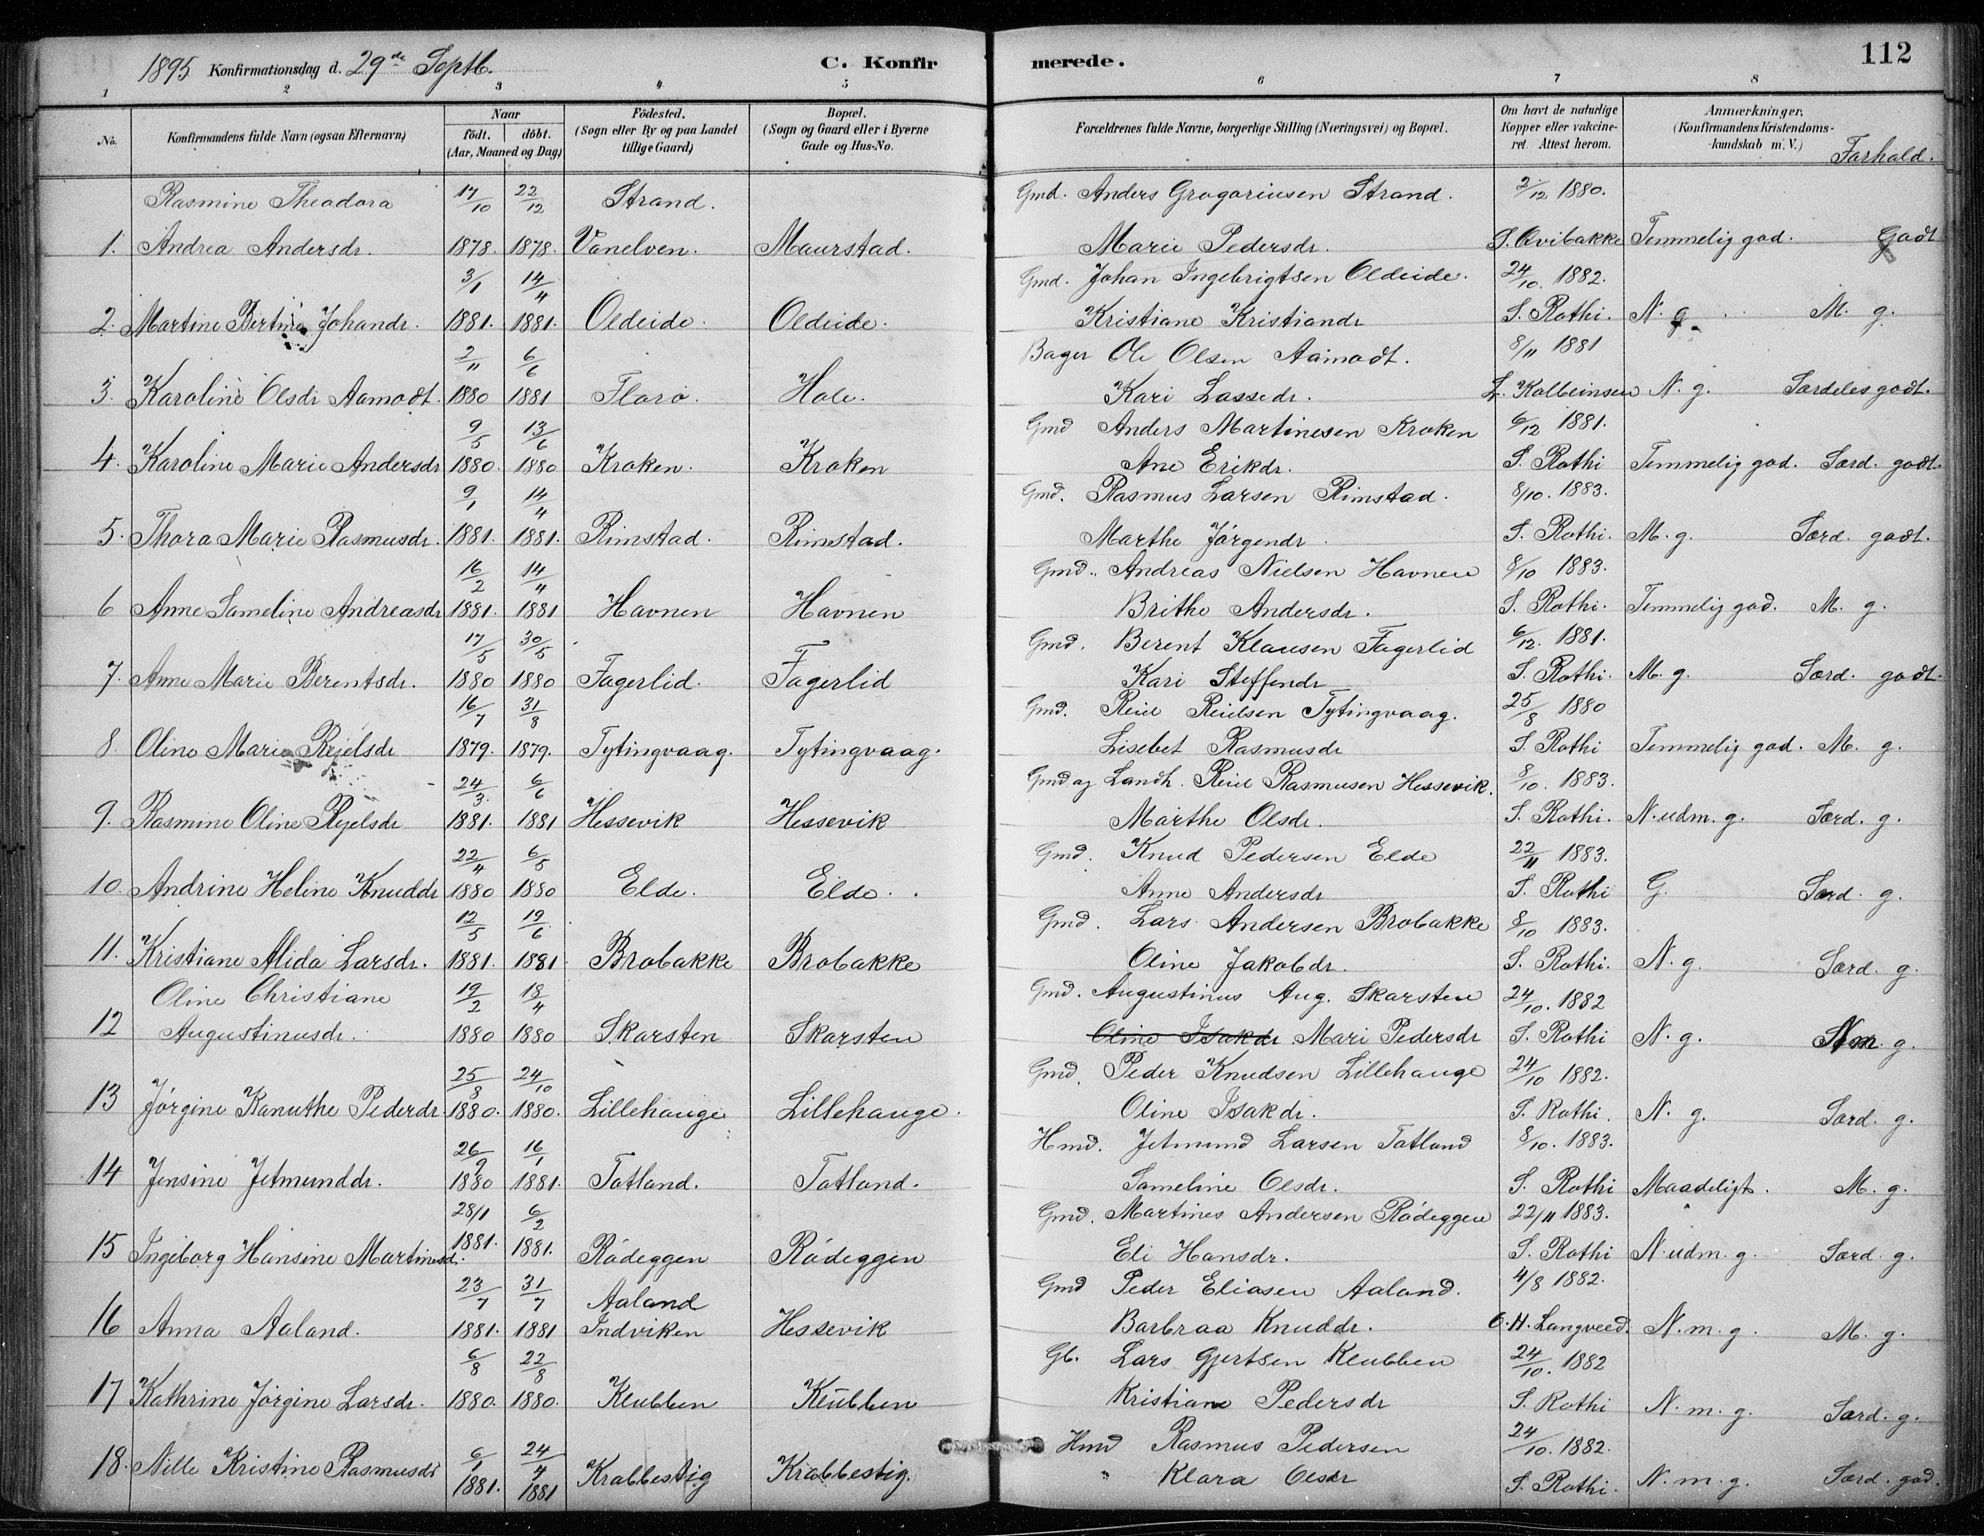 1895 Konfirmationsdag d. 29de Septb. C. Konfirmerede. 112
1 2 3 4 5 6 7 8
No. Konfirmandens fulde Navn (ogsaa Efternavn) Naar født. døbt. (Aar, Maaned og Dag) Födested. (Sogn eller By og paa Landet tillige Gaard) Bopæl. (Sogn og Gaard eller i Byerne Gade og Hus-No. Forældrenes fulde Navne, borgerlige Stilling (Næringsvei) og Bopæl. Om havt de naturlige Kopper eller vakcineret. Attest herom. Anmærkninger. (Konfirmandens Kristendomskundskab m. V.) Forhold.
Rasmine Theodora 17/10 22/12 Strand. Gmd. Anders Gregoriusen Strand. 2/12 1880.
1. Andrea Andersdr. 1878. 1878. Vanelven. Maurstad. Marie Pedersdr. S. Qvibakke Temmelig god. Godt
3/1 14/4 Gmd. Johan Ingebrigtsen Oldeide. 24/10. 1882.
2. Martine Bertine Johandr. 1881. 1881. Oldeide. Oldeide. Kristiane Kristiandr S. Rothi. N. g. M. g.
2/11 6/6 Bager Ole Olsen Aamodt. 8/11 1881
3. Karoline Olsdr Aamodt. 1880 1881 Florø. Hole. Kari Lassedr. L. Kolbeinsen N. g. Særdeles godt.
9/5 13/6 Gmd Anders Martinesen Kroken 6/12 1881.
4. Karoline Marie Andersdr 1880. 1880 Kroken. Kroken Ane Erikdr. S. Rothi Temmelig god. Særd. godt.
9/1 14/4 Gmd. Rasmus Larsen Rimstad. 8/10. 1883.
5. Thora Marie Rasmusdr. 1881. 1881. Rimstad. Rimstad. Marthe Jørgendr. S. Rothi. M. g. Særd. godt.
16/2 14/4 Gmd. Andreas Nielsen Havnen 8/10 1883.
6 Anne Sameline Andreasdr 1881. 1881 Havnen Havnen Brithe Andersdr. S. Rothi. Temmelig god. M. g.
17/5 30/5 Gmd. Berent Klausen Fagerlid 6/12. 1881.
7. Anne Marie Berentsdr. 1880 1880 Fagerlid. Fagerlid Kari Steffendr S. Rothi. M. g. Særd. godt.
16/7 31/8 Gmd. Reiel Reielsen Tytingvaag. 25/8 1880
8. Oline Marie Rejelsdr 1879. 1879. Tytingvaag. Tytingvaag. Lisebet Rasmusdr S. Rothi Temmelig god. M. g.
24/3. 6/6 Gmd og Landh. Reiel Rasmusen Hessevik. 8/10. 1883.
9. Rasmine Oline Rejelsdr 1881. 1881 Hessevik Hessevik Marthe Olsdr. S. Rothi. N. udm. g. Særd. g.
22/4 6/5 Gmd. Knud Pedersen Elde 22/11 1883.
10. Andrine Heline Knuddr 1880 1880 Elde. Elde. Anne Andersdr S. Rothi G. Særd. g.
12/5 19/6 Gmd. Lars Andersen Brobakke 8/10 1883.
11. Kristiane Alida Larsdr. 1881. 1881. Brobakke Brobakke Oline Jakobdr. S. Rothi. N. g. Særd. g.
Oline Christiane 19/2 18/4 Gmd. Augustinus Aug. Skarsten 24/10. 1882
12 Augustinusdr. 1880 1880 Skarsten Skarsten Oline Isakdr Mari Pedersdr S. Rothi N. g. g.
25/8 24/10 Gmd. Peder Knudsen Lillehauge 24/10 1882.
13 Jørgine Kanuthe Pederdr. 1880. 1880. Lillehauge Lillehauge. Oline Isakdr. S. Rothi N. g. Særd. g.
26/9 16/1 Hmd. Jetmund Larsen Totland 8/10. 1883.
14 Jensine Jetmunddr. 1880 1881. Totland. Totland. Sameline Olsdr. S. Rothi Maadeligt. M. g.
28/1 6/2 Gmd. Martines Andersen Rödeggen 22/11 1883.
15 Ingeborg Hansine Martinusd. 1881. 1881. Rödeggen Rödeggen Eli Hansdr. S. Rothi N. udm. g. Særd. g.
23/7 31/7 Aaland Gmd Peder Eliasen Aaland. 4/8 1882.
16 Anna Aaland. 1881. 1881 Indviken Hessevik Barbraa Knuddr. O. H. Langveed. N. m. g. M. g.
6/8 22/8 Gb. Lars Gjertsen Klubben 24/10. 1882
17 Kathrine Jørgine Larsdr. 1880. 1880. Klubben Klubben Kristiane Pedersdr S. Rothi N. m. g. Særd. g.
6/1 24/4 Hmd Rasmus Pedersen 24/10. 1882.
18. Nille Kristine Rasmusdr 1881. 1881 Krabbestig Krabbestig. " Klara Olsdr S. Rothi. N. m. g. Særd. god.